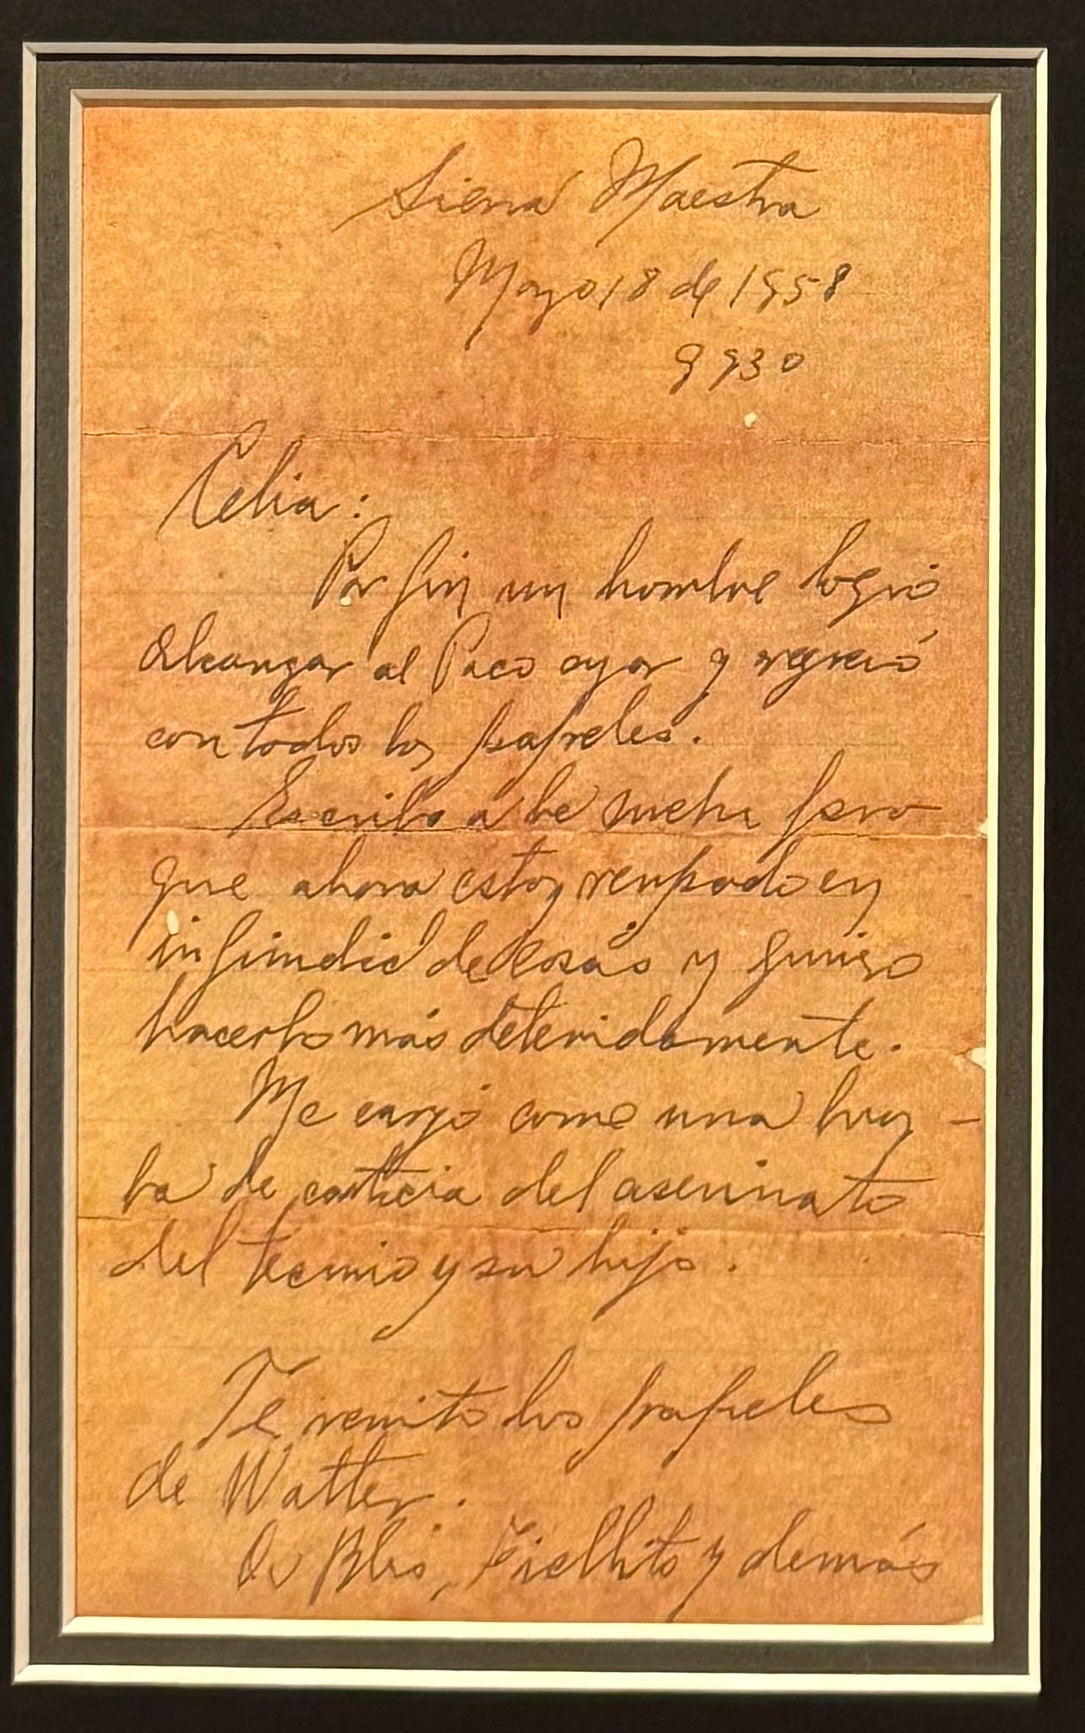 Sierra Maestra
Mayo 18 de 1958
9 y 30
Celia:
Por fin un hombre logró
alcanzar al Paco ayer y regresó
con todos los papeles.
Escribo a pero
que ahora estoy ocupado en
infinidad de cosas y quiero
hacerlo más detenidamente.
Me cayó como una bom-
ba de del asesinato
del tecnico y su hijo.
Te remito los papeles
de Watter.
y demás